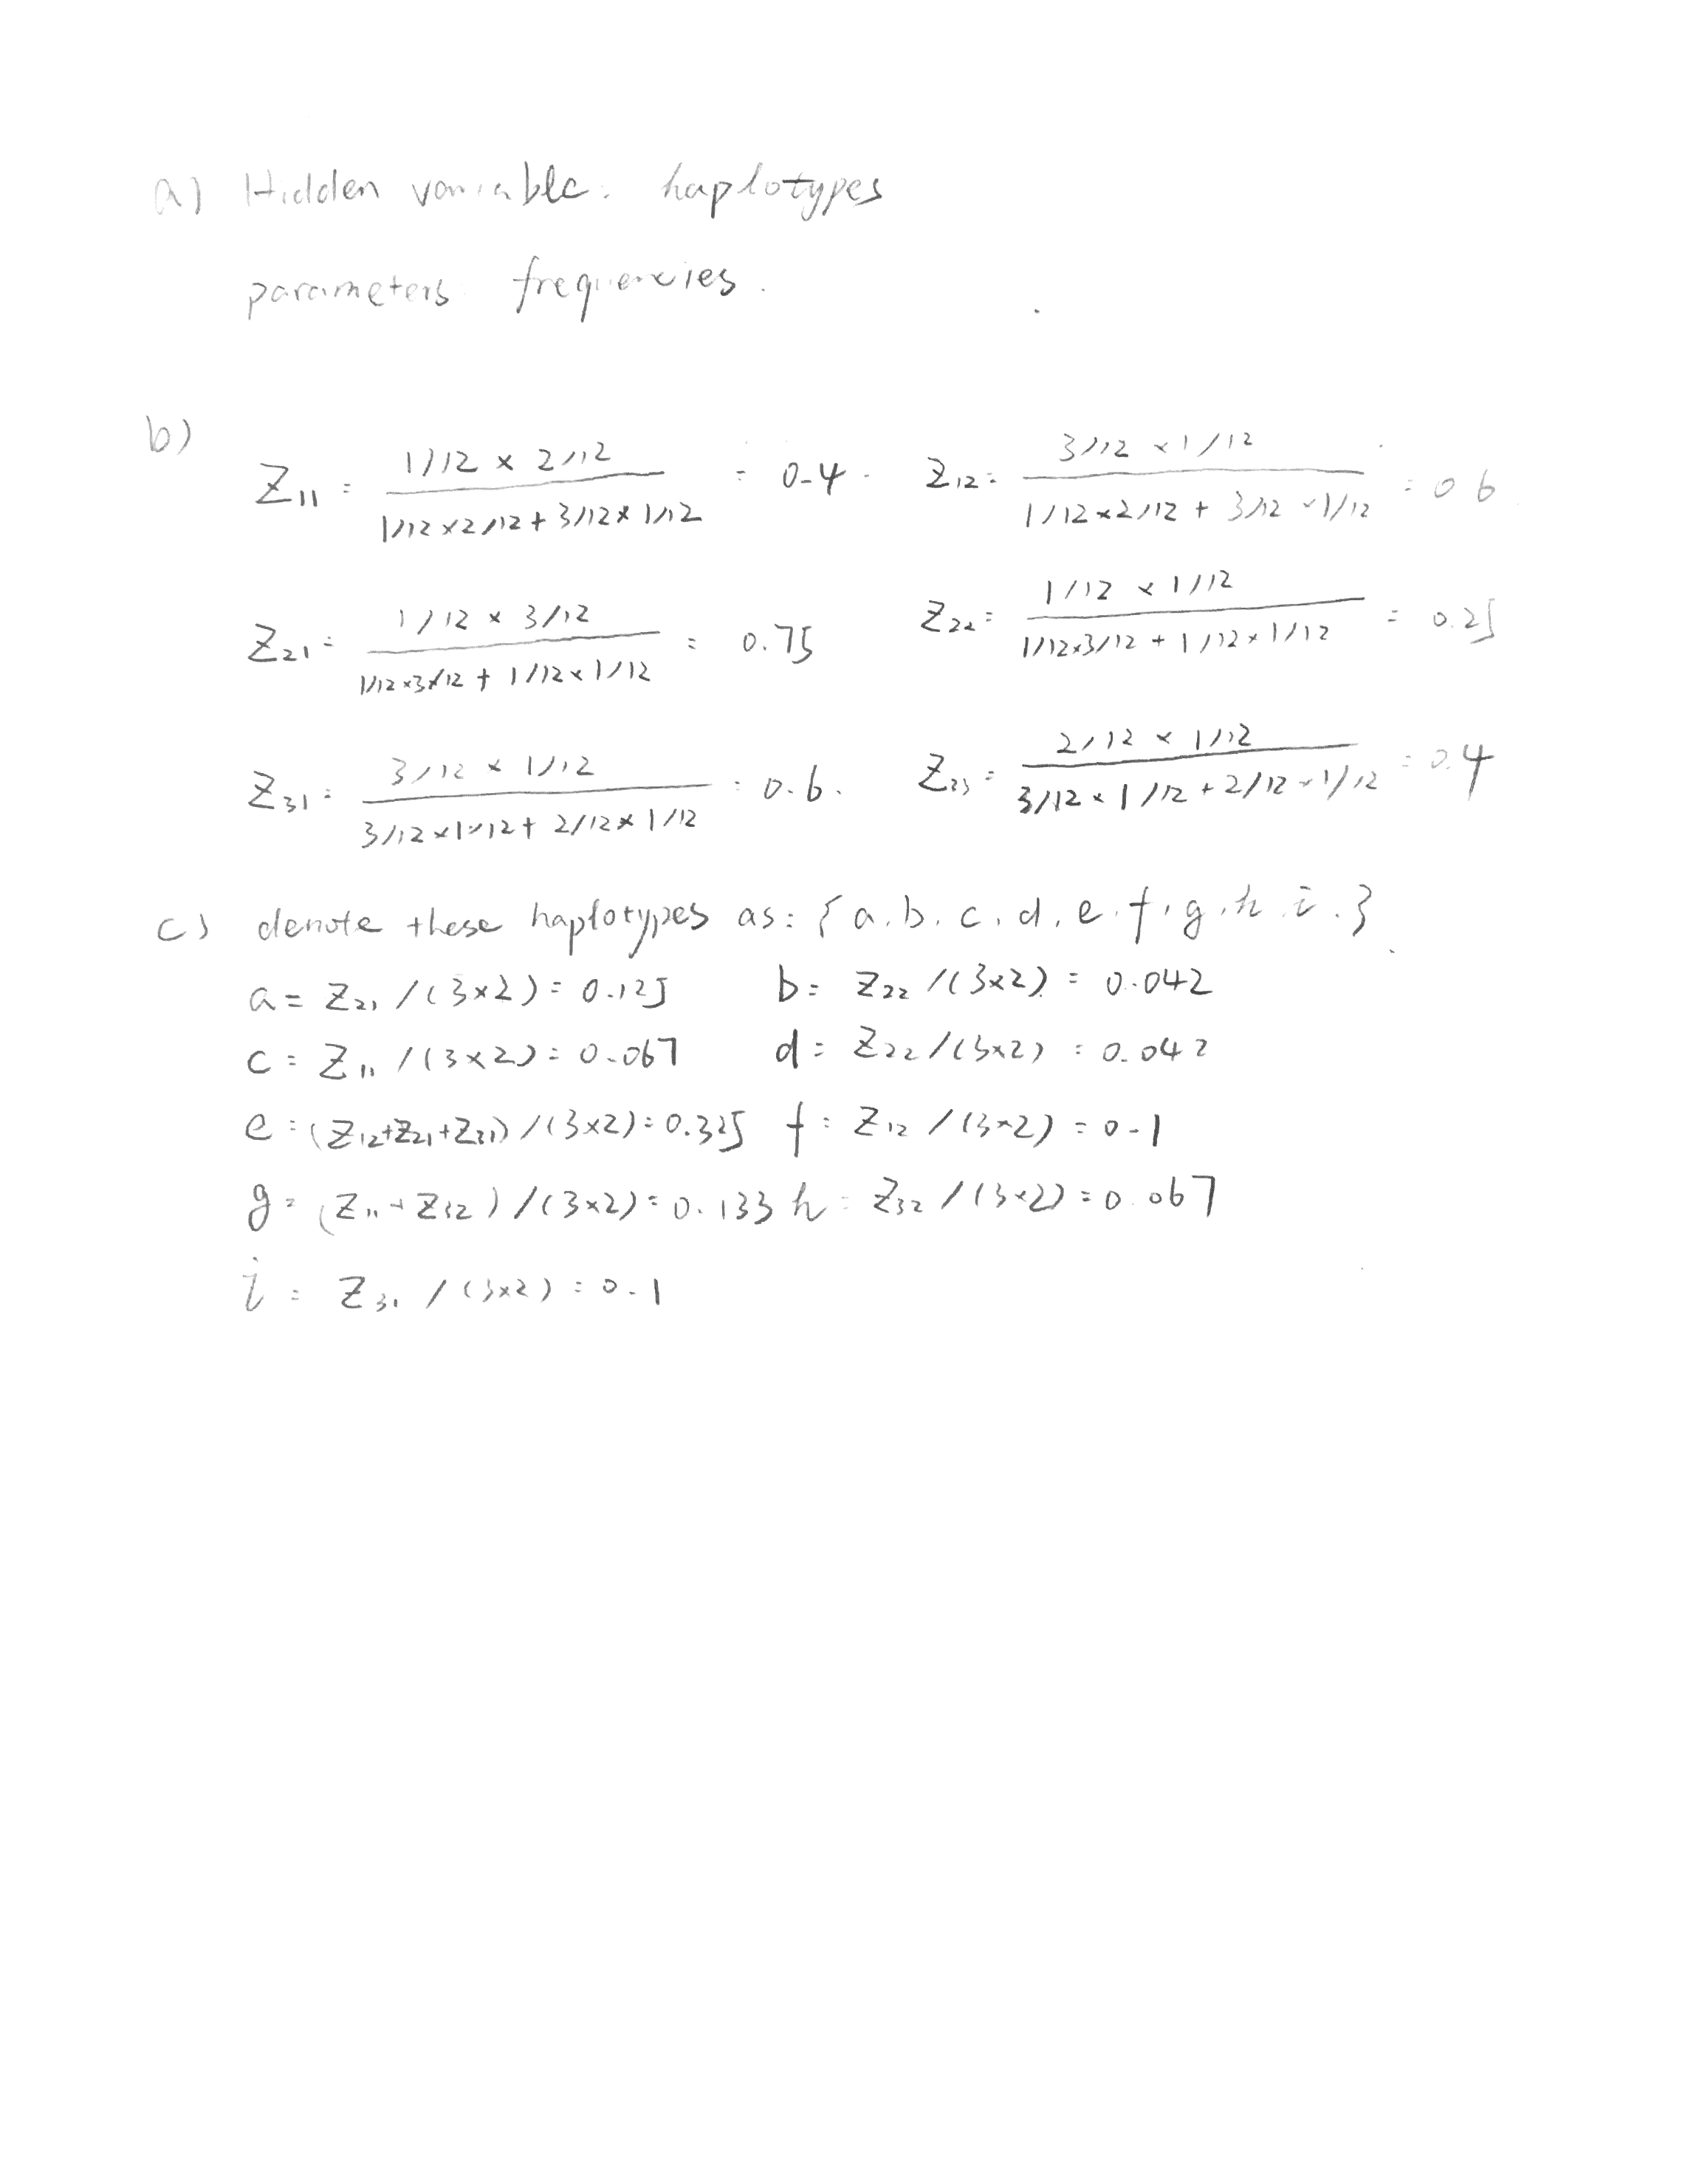 a) Hidden variable: haplotypes
parameters frequencies.
b)
Z11 = (1/12 × 2/12) / (1/12×2/12 + 3/12×1/12) = 0.4. Z12 = (3/12 × 1/12) / (1/12×2/12 + 3/12×1/12) = 0.6
Z21 = (1/12 × 3/12) / (1/12×3/12 + 1/12×1/12) = 0.75 Z22 = (1/12 × 1/12) / (1/12×3/12 + 1/12×1/12) = 0.25
Z31 = (3/12 × 1/12) / (3/12×1/12 + 2/12×1/12) = 0.6. Z23 = (2/12 × 1/12) / (3/12×1/12 + 2/12×1/12) = 0.4
c) denote these haplotypes as: {a, b, c, d, e, f, g, h, i.}
a = Z21 /(3×2) = 0.125 b = Z22 /(3×2) = 0.042
c = Z11 /(3×2) = 0.067 d = Z22 /(3×2) = 0.042
e = (Z12+Z21+Z31) /(3×2) = 0.325 f = Z12 /(3×2) = 0.1
g = (Z11 + Z32) /(3×2) = 0.133 h = Z32 /(3×2) = 0.067
i = Z31 /(3×2) = 0.1